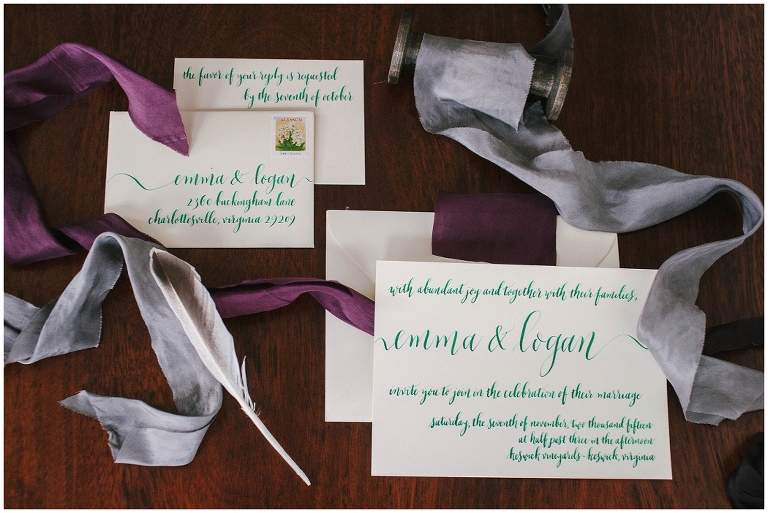 the favor of your reply is requested
by the seventh of october
emma & logan
2360 buckingham lane
charlottesville, virginia 29209
with abundant joy and together with their families,
emma & logan
invite you to join in the celebration of their marriage
saturday, the seventh of november, two thousand fifteen
at half past three in the afternoon
keswick vineyards - keswick, virginia